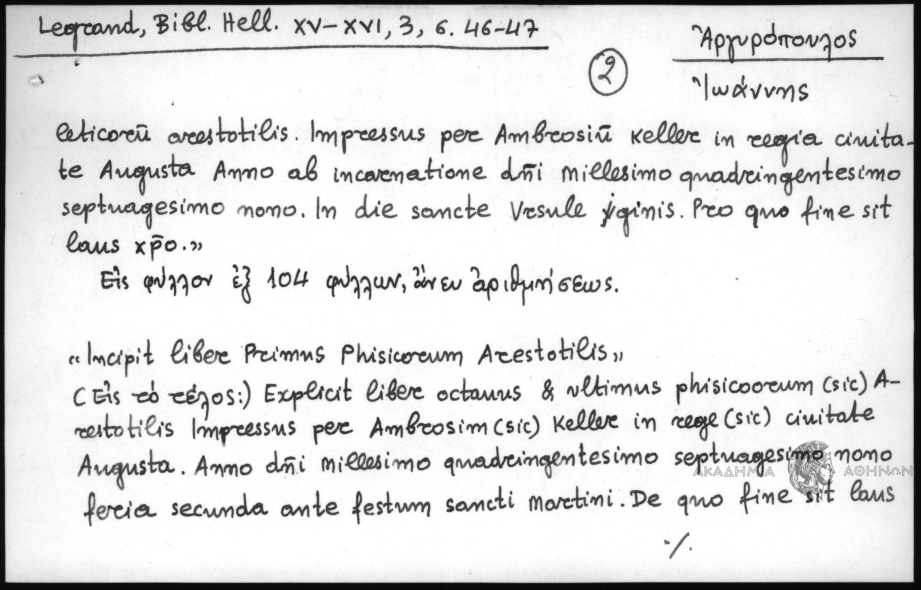 Legrand, Bibl. Hell. XV–XVI, 3, σ. 46-47
②
Ἀργυρόπουλος
Ἰωάννης
leticorū arestotilis. Impressus per Ambrosiū Keller in regia ciuita-
te Augusta Anno ab incarnatione dn̄i Millesimo quadringentesimo
septuagesimo nono. In die sancte Vrsule ꝟginis. Pro quo fine sit
laus xp̄o.»
Εἰς φύλλον ἐξ 104 φύλλων, ἄνευ ἀριθμήσεως.
«Incipit liber Primus Phisicorum Arestotilis»
(Εἰς τὸ τέλος:) Explicit liber octauus & vltimus phisicoorum (sic) A-
restotilis Impressus per Ambrosim (sic) Keller in rege (sic) ciuitate
Augusta. Anno dn̄i Millesimo quadringentesimo septuagesimo nono
feria secunda ante festum sancti Martini. De quo fine sit laus
ΑΚΑΔΗΜΙΑ ΑΘΗΝΩΝ
·/.